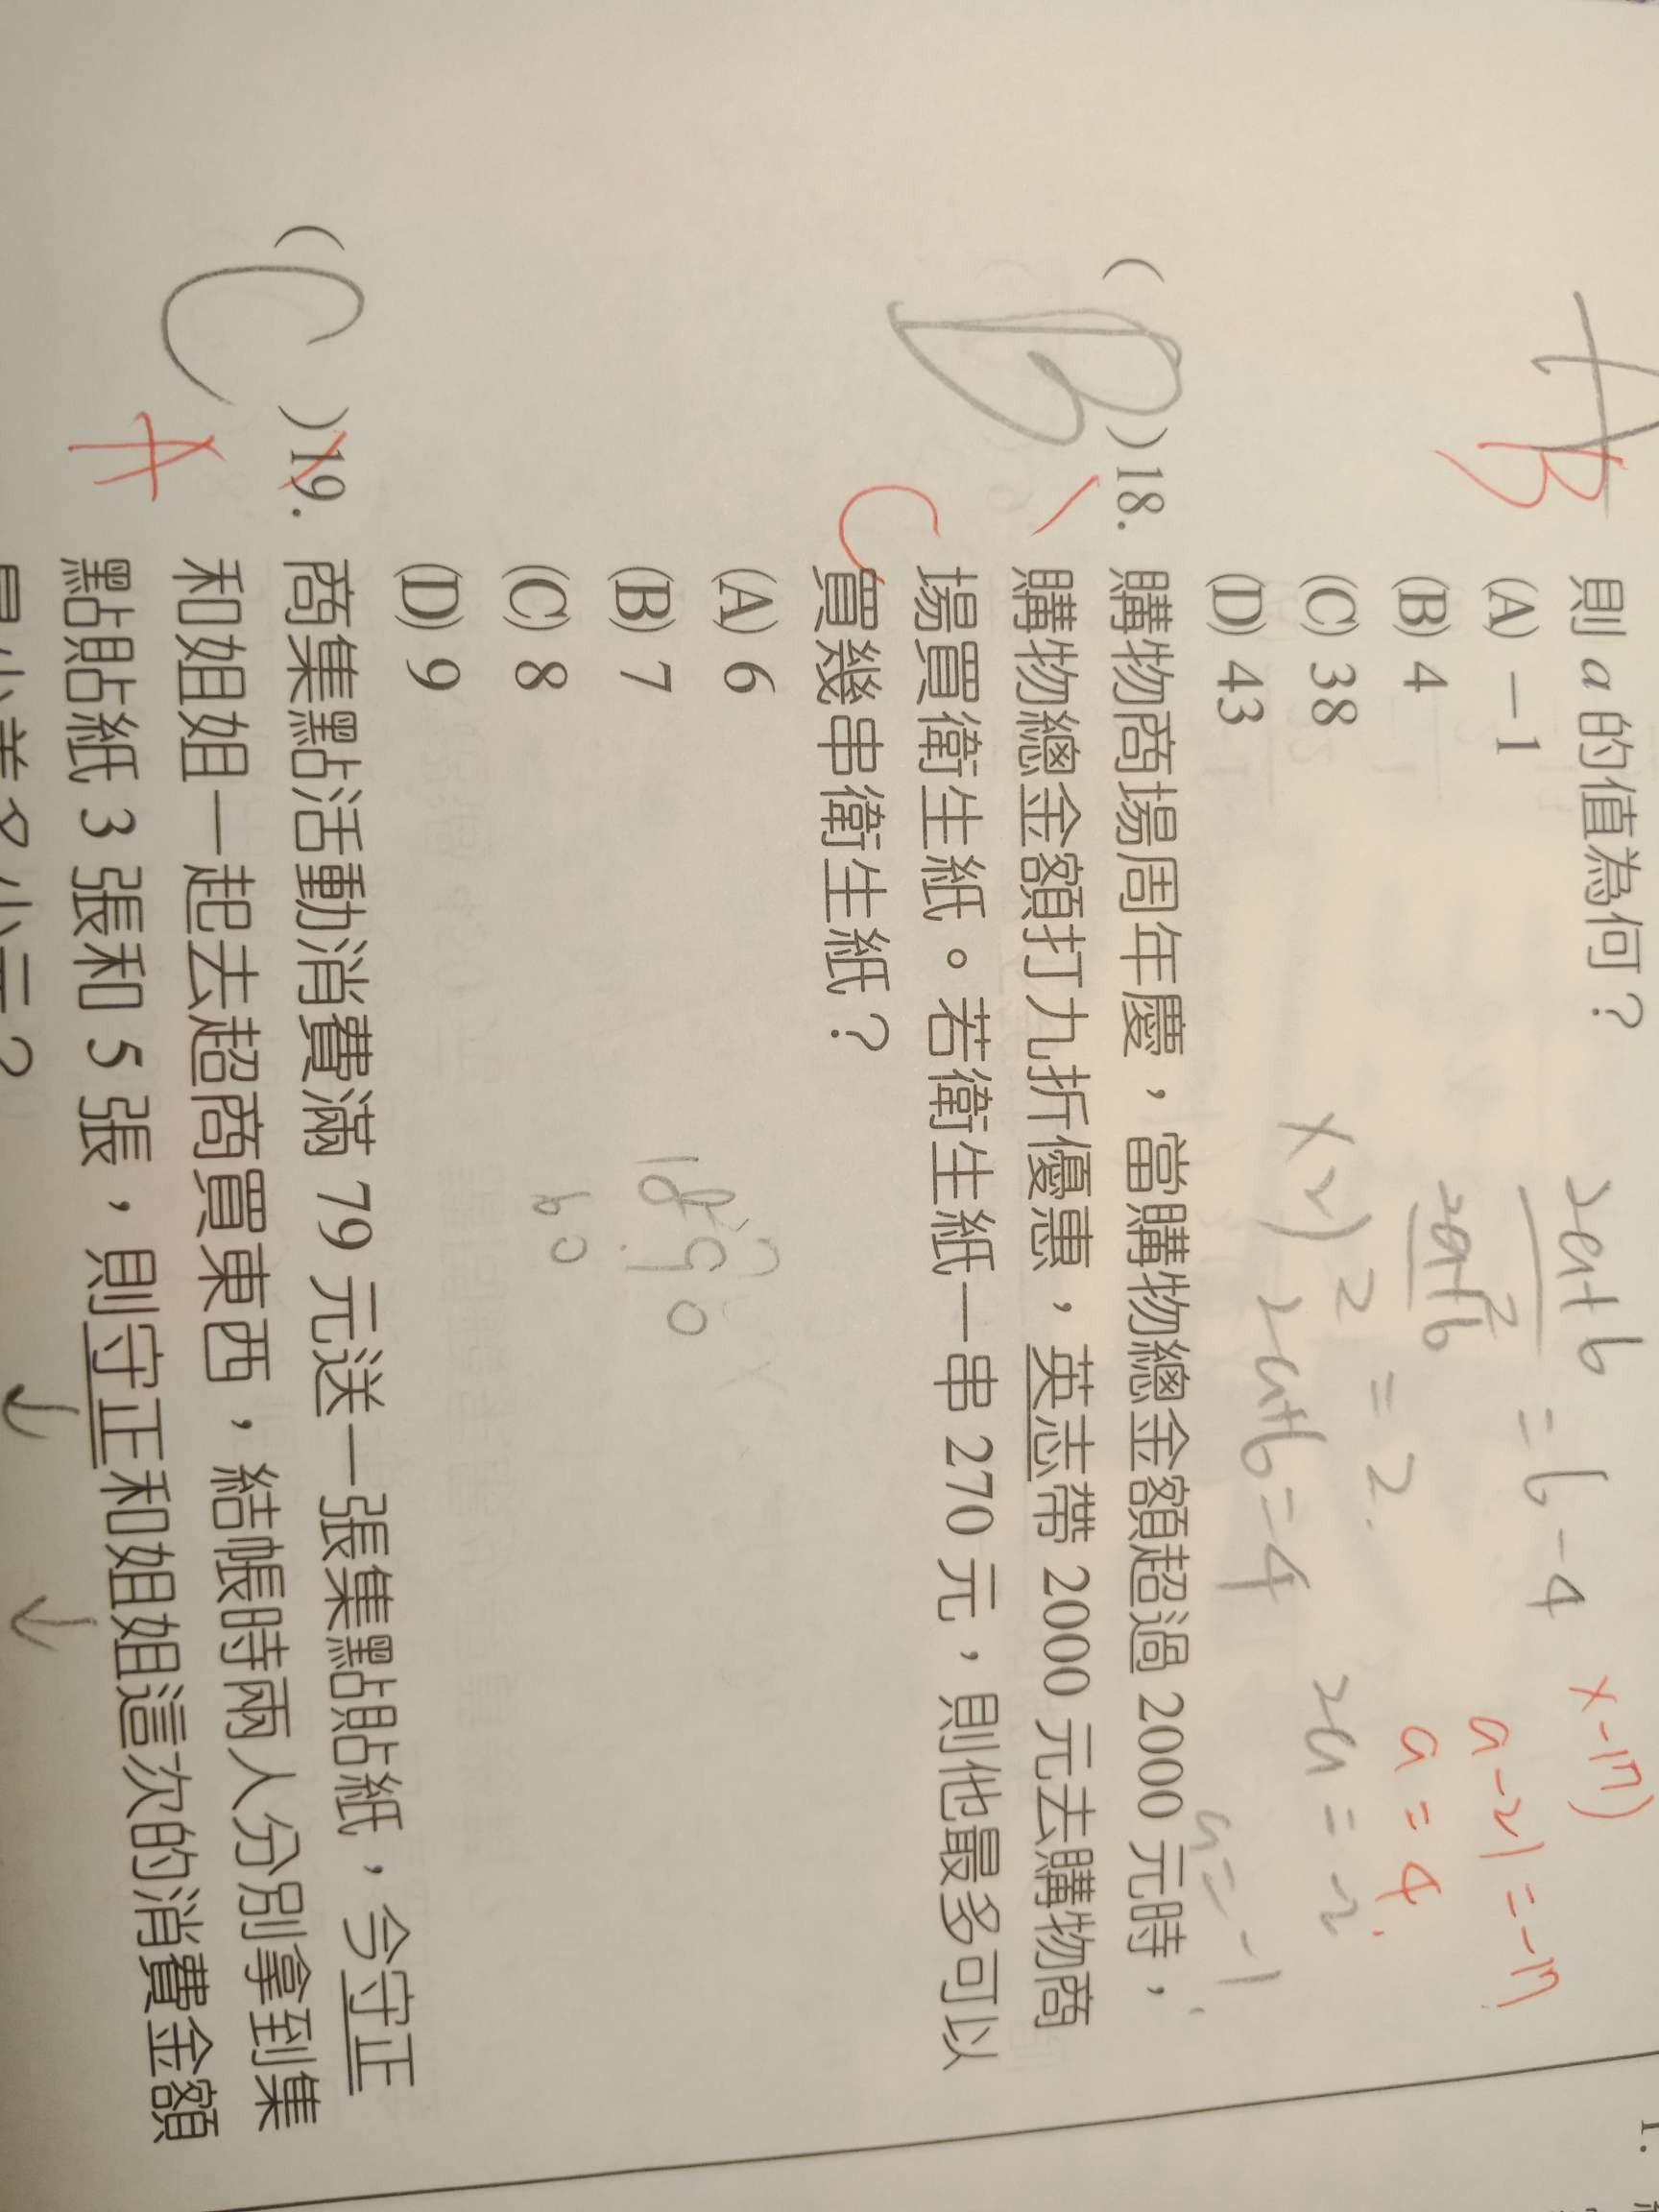 則 a 的值為何？
(A) －1
(B) 4
(C) 38
(D) 43
2a+b
= b-4
2a+b
2
×2) 2 = 2
2a+b=4
2a=-2
a=-1
x-17)
a-21=-17
a=4
A
B
( B )18. 購物商場周年慶，當購物總金額超過 2000 元時，
購物總金額打九折優惠，英志帶 2000 元去購物商
場買衛生紙。若衛生紙一串 270 元，則他最多可以
買幾串衛生紙？
C
(A) 6
(B) 7
(C) 8
(D) 9
( C )19. 商集點活動消費滿 79 元送一張集點貼紙，今守正
和姐姐一起去超商買東西，結帳時兩人分別拿到集
點貼紙 3 張和 5 張，則守正和姐姐這次的消費金額
A
1.